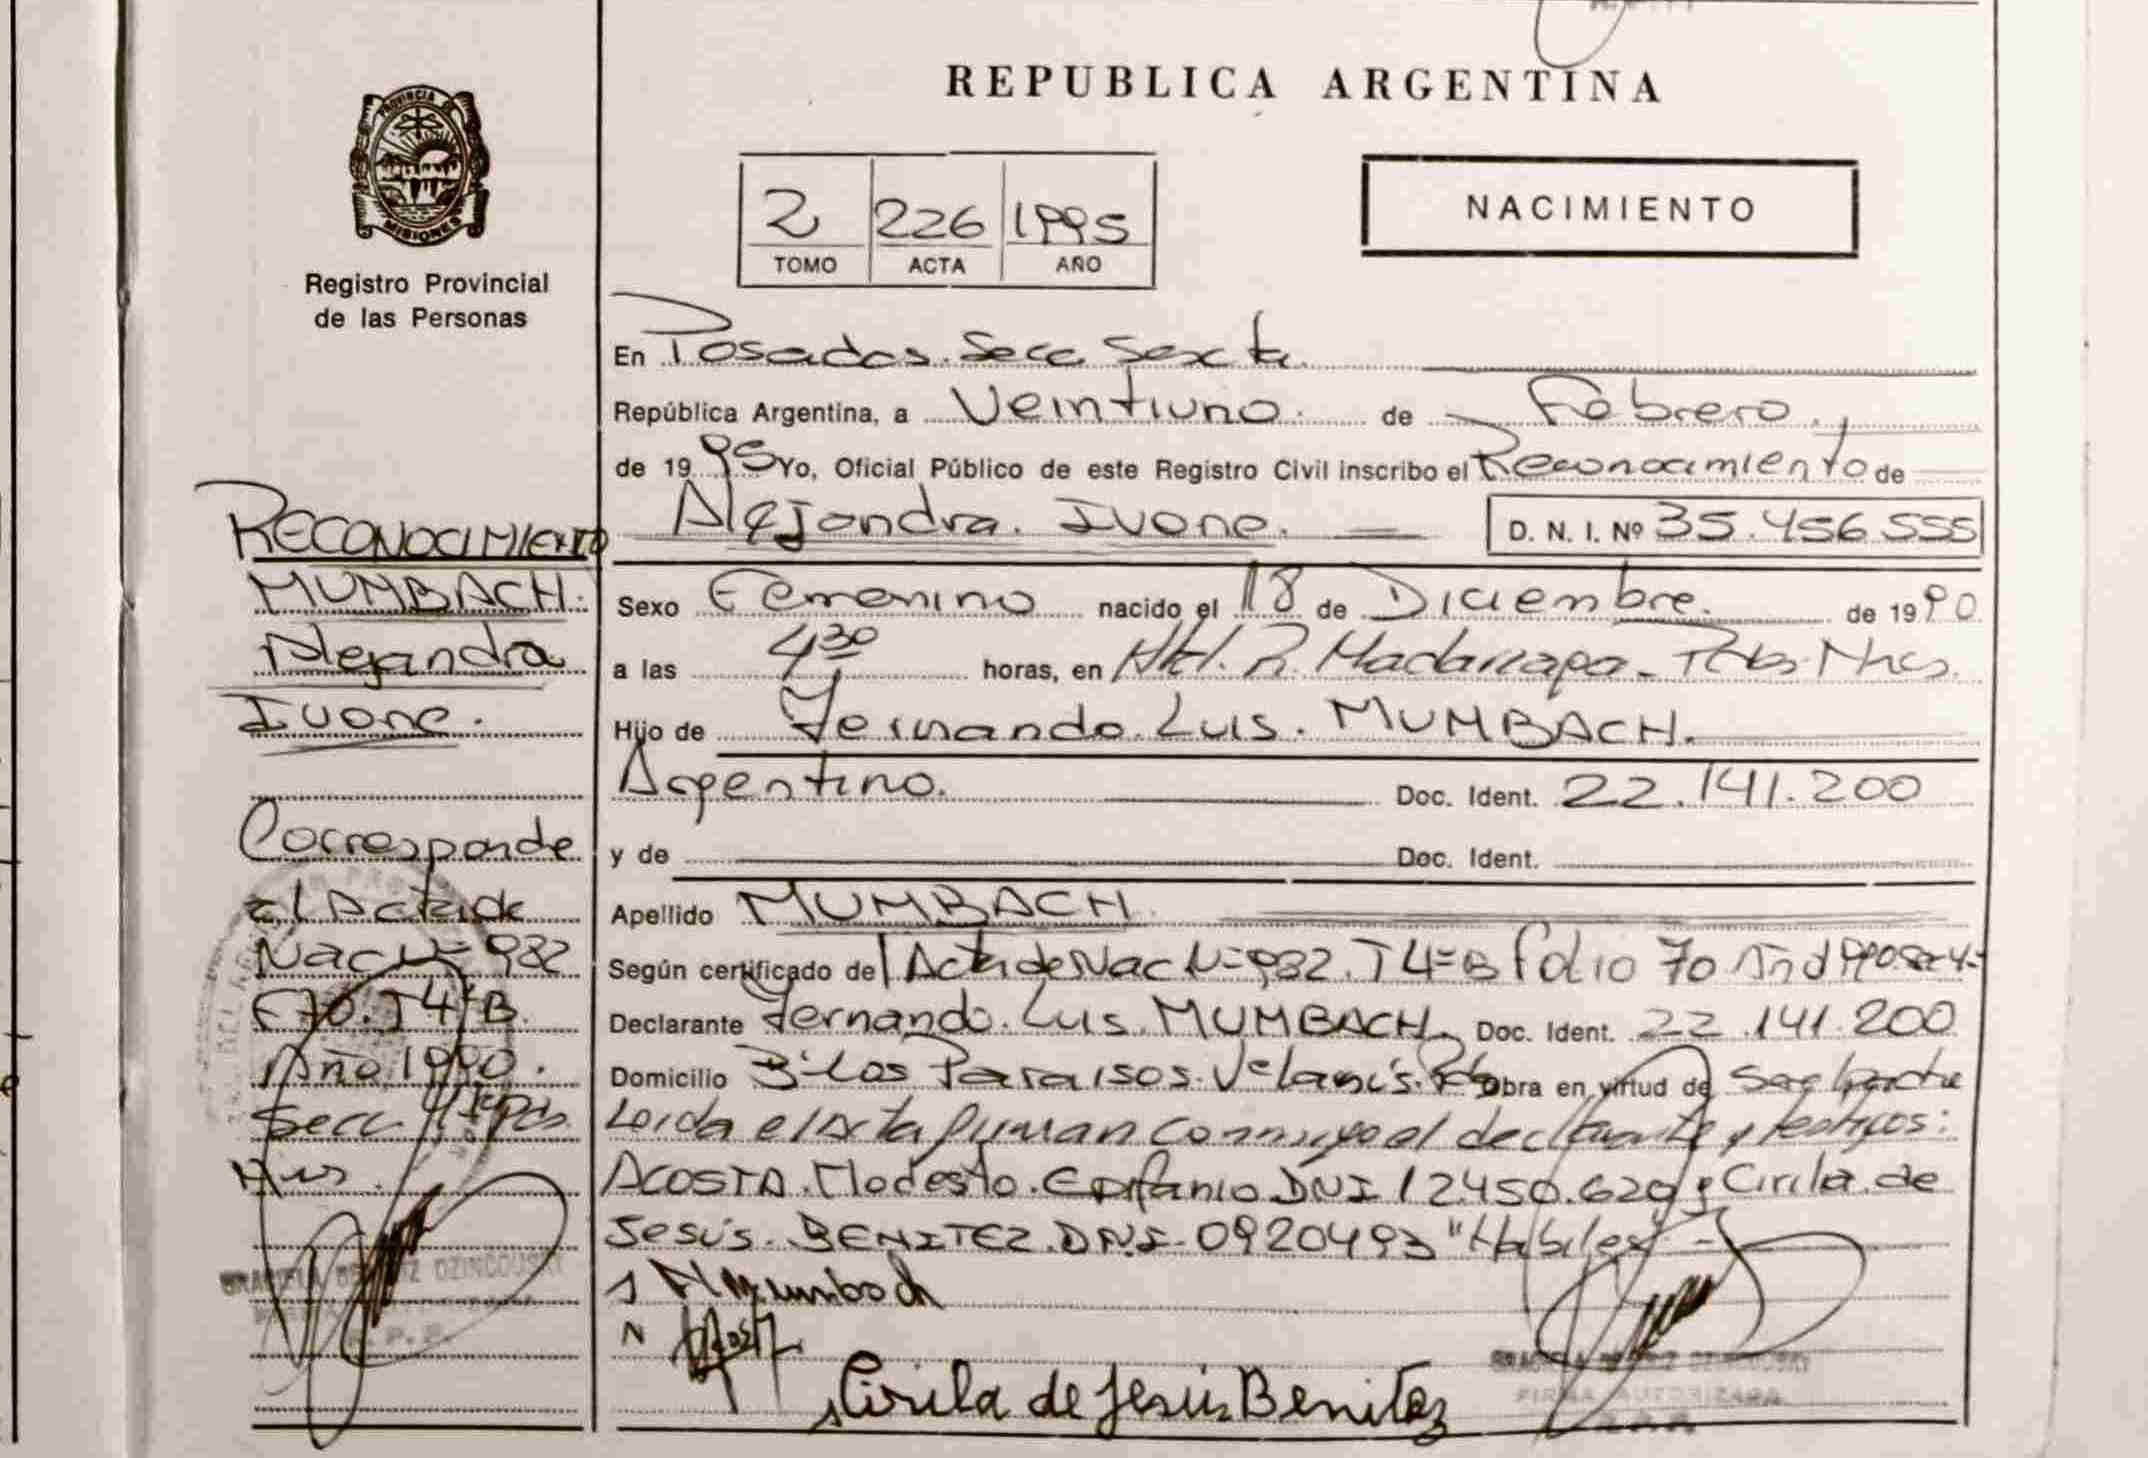 REPUBLICA ARGENTINA
PROVINCIA DE
MISIONES
Registro Provincial
de las Personas
2 226 1995
TOMO ACTA AÑO
NACIMIENTO
En Posadas. Secc Sexta
República Argentina, a Veintiuno. de Febrero.
de 1995 Yo, Oficial Público de este Registro Civil inscribo el Reconocimiento de
Alejandra. Ivone. D. N. I. Nº 35.456.555
Sexo Femenino nacido el 18 de Diciembre. de 1990
a las 4 30 horas, en R. Madariaga
Hijo de Fernando. Luis. MUMBACH.
Argentino. Doc. Ident. 22.141.200
y de Doc. Ident.
Apellido MUMBACH
Según certificado del Acta de Nac Nº 982. T 4º B folio 70
Declarante Fernando. Luis. MUMBACH. Doc. Ident. 22.141.200
Domicilio Bº Los Paraisos. Obra en virtud de
Leida el Acta firman conmigo el declarante y testigos:
ACOSTA. Modesto. Epifanio DNI 12.450.629 y Cirila. de
Jesús. BENITEZ. DNI. 0920493 "Habiles"
Cirila de Jesús Benitez
FIRMA AUTORIZADA
RECONOCIMIENTO
MUMBACH.
Alejandra
Ivone.
Corresponde
al Acta de
Nac Nº 982
F 70. T 4º B.
Año 1990.
Secc